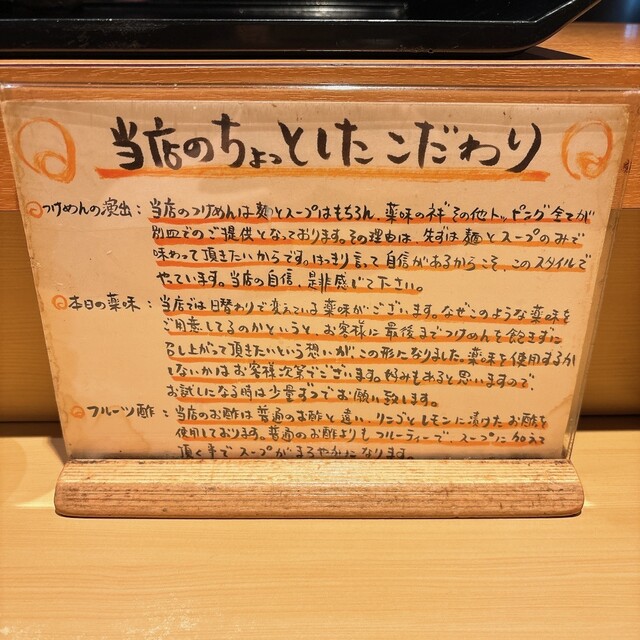 当店のちょっとしたこだわり
つけめんの演出：当店のつけめんは麺とスープはもちろん、薬味のネギその他トッピング全てが
別皿でのご提供となっております。その理由は、先ずは麺とスープのみで
味わって頂きたいからです。はっきり言って自信があるからこそ、このスタイルで
やっています。当店の自信、是非感じて下さい。
本日の薬味：当店では日替わりで変えている薬味がございます。なぜこのような薬味を
ご用意してるのかというと、お客様に最後までつけめんを飽きずに
召し上がって頂きたいという想いがこの形になりました。薬味を使用するか
しないかはお客様次第でございます。好みもあると思いますので、
お試しになる時は少量ずつでお願い致します。
フルーツ酢：当店のお酢は普通のお酢と違い、リンゴとレモンに漬けたお酢を
使用しております。普通のお酢よりもフルーティーで、スープに加えて
頂く事でスープがまろやかになります。